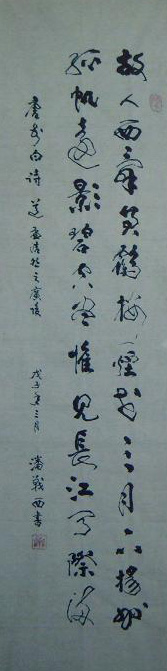 故人西辞黄鶴楼煙花三月下揚州
孤帆遠影碧空盡惟見長江天際流
唐李白詩 送孟浩然之廣陵 戊子年三月 潘西書